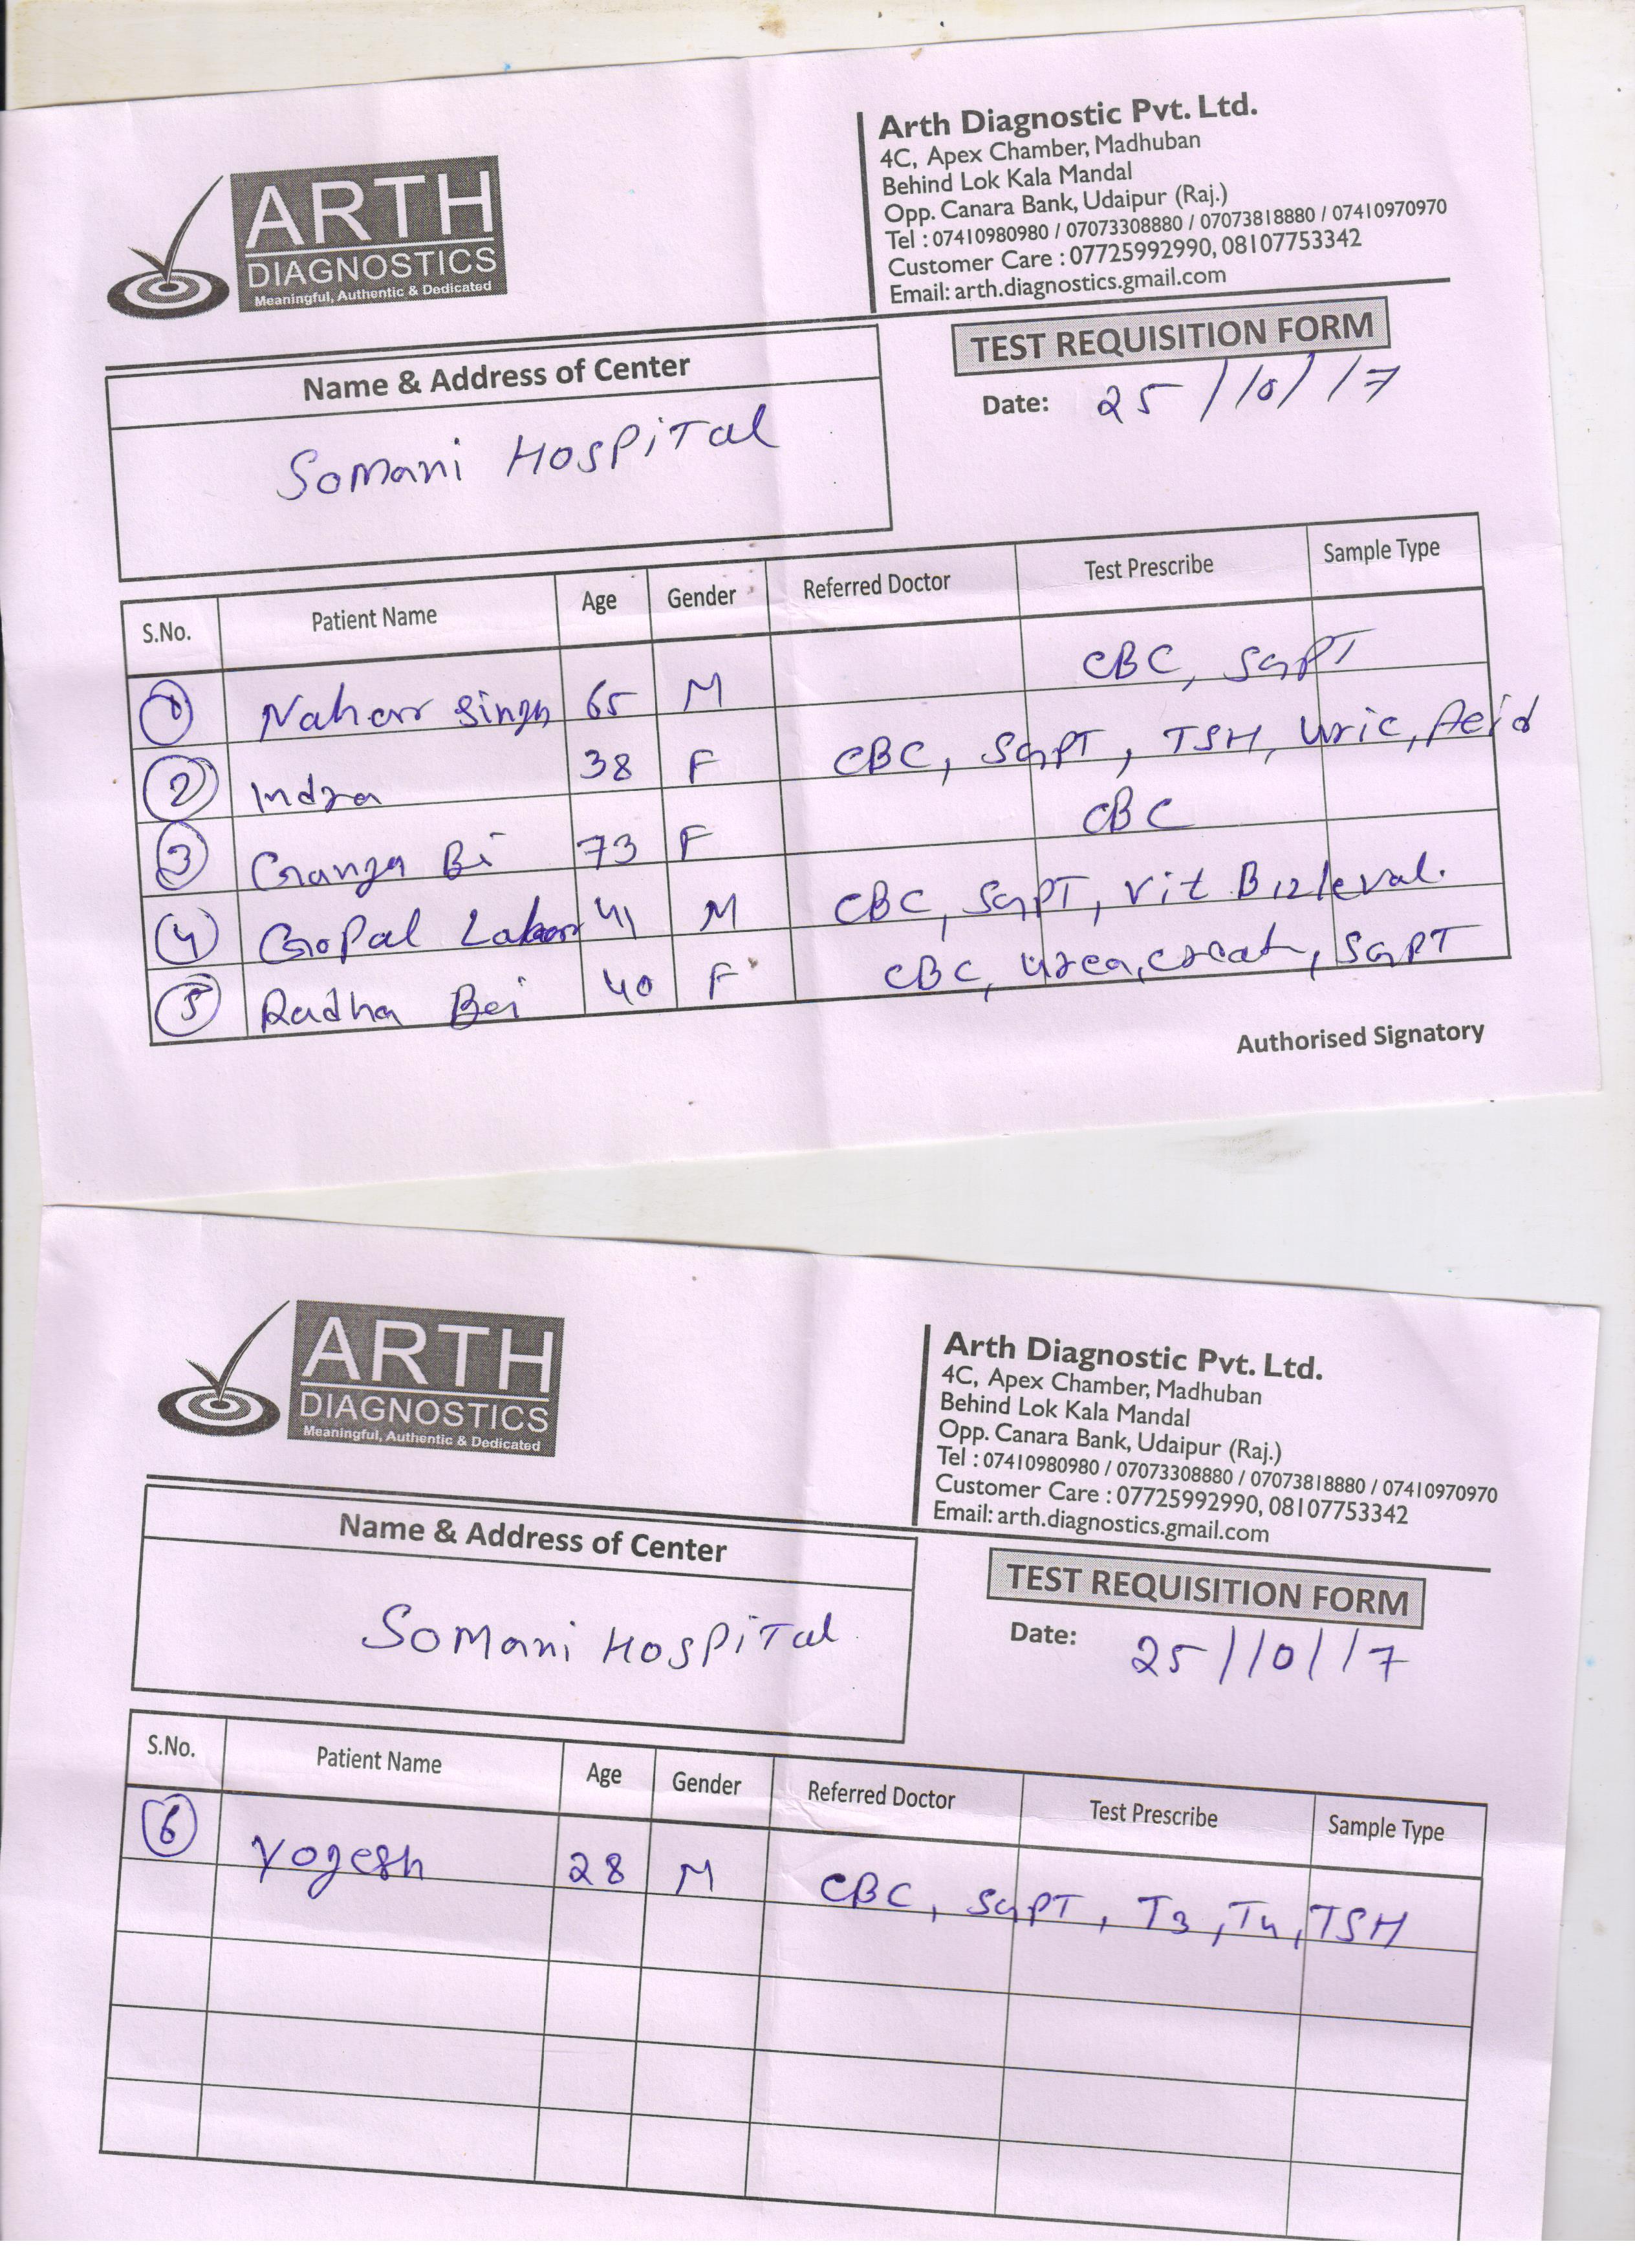 ARTH
DIAGNOSTICS
Meaningful, Authentic & Dedicated
Arth Diagnostic Pvt. Ltd.
4C, Apex Chamber, Madhuban
Behind Lok Kala Mandal
Opp. Canara Bank, Udaipur (Raj.)
Tel : 07410980980 / 07073308880 / 07073818880 / 07410970970
Customer Care : 07725992990, 08107753342
Email: arth.diagnostics.gmail.com
Name & Address of Center
TEST REQUISITION FORM
Somani Hospital
Date: 25/10/17
S.No. Patient Name Age Gender Referred Doctor Test Prescribe Sample Type
1 Nahar Singh 65 M CBC, SGPT
2 Indra 38 F CBC, SGPT, TSH, Uric, Acid
3 Ganga Bi 73 F CBC
4 Gopal 41 M CBC, SGPT, Vit B12 leval.
5 Radha Bai 40 F CBC, Urea, creat, SGPT
Authorised Signatory
ARTH
DIAGNOSTICS
Meaningful, Authentic & Dedicated
Arth Diagnostic Pvt. Ltd.
4C, Apex Chamber, Madhuban
Behind Lok Kala Mandal
Opp. Canara Bank, Udaipur (Raj.)
Tel : 07410980980 / 07073308880 / 07073818880 / 07410970970
Customer Care : 07725992990, 08107753342
Email: arth.diagnostics.gmail.com
Name & Address of Center
TEST REQUISITION FORM
Somani Hospital
Date: 25/10/17
S.No. Patient Name Age Gender Referred Doctor Test Prescribe Sample Type
6 Yogesh 28 M CBC, SGPT, T3, T4, TSH